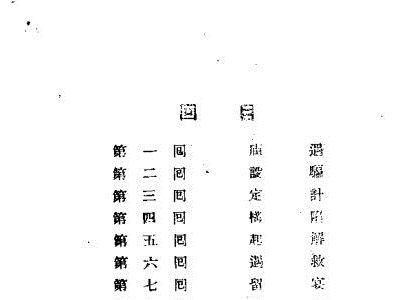 回 目
第 一 回 遇
第 二 回 設 驅
第 三 回 定 計
第 四 回 構 陷
第 五 回 起 解
第 六 回 遇 救
第 七 回 留 宴